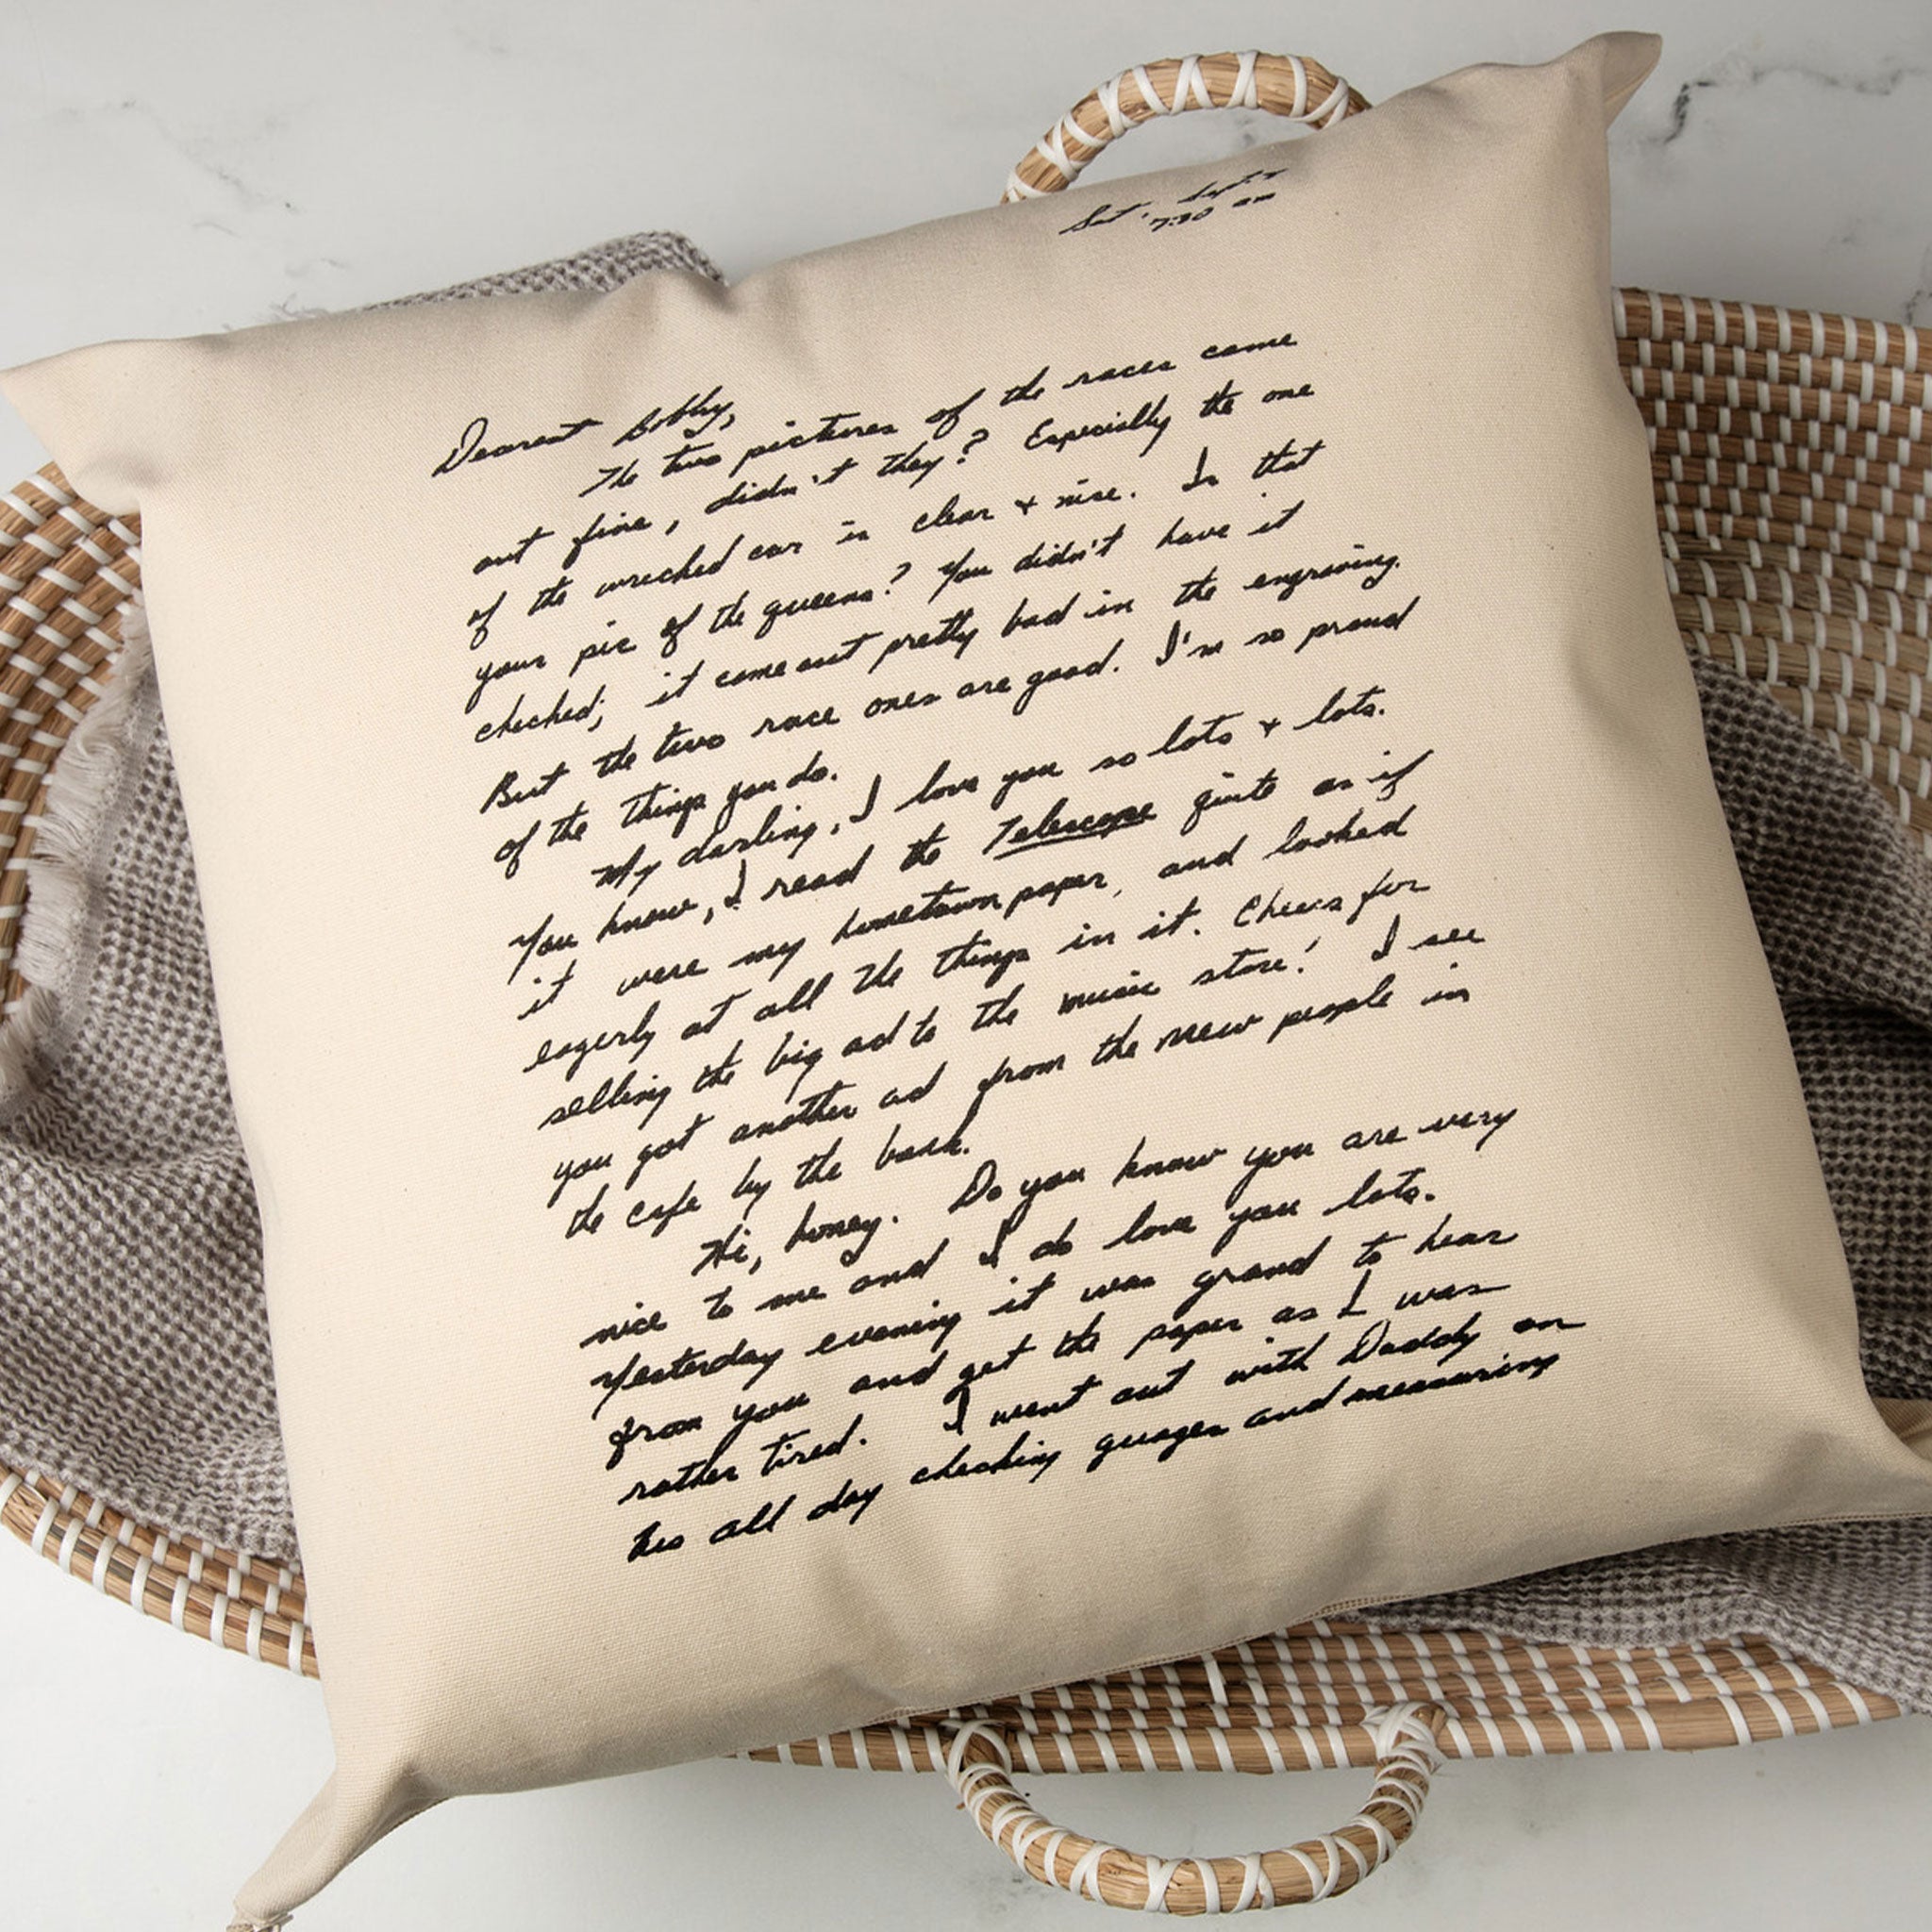 Sat. Sept.
7:30 am
Dearest Bobby,
The two pictures of the races came
out fine, didn't they? Especially the one
of the wrecked car is clear + nice. Is that
your pic of the queens? You didn't have it
checked; it came out pretty bad in the engraving.
But the two race ones are good. I'm so proud
of the things you do.
My darling, I love you so lots + lots.
You know, I read the Telescope quite as if
it were my hometown paper, and looked
eagerly at all the things in it. Cheers for
selling the big ad to the music store! I see
you got another ad from the new people in
the cafe by the bank.
Hi, honey. Do you know you are very
nice to me and I do love you lots.
Yesterday evening it was grand to hear
from you and get the paper as I was
rather tired. I went out with Daddy on
his all day checking guages and measuring